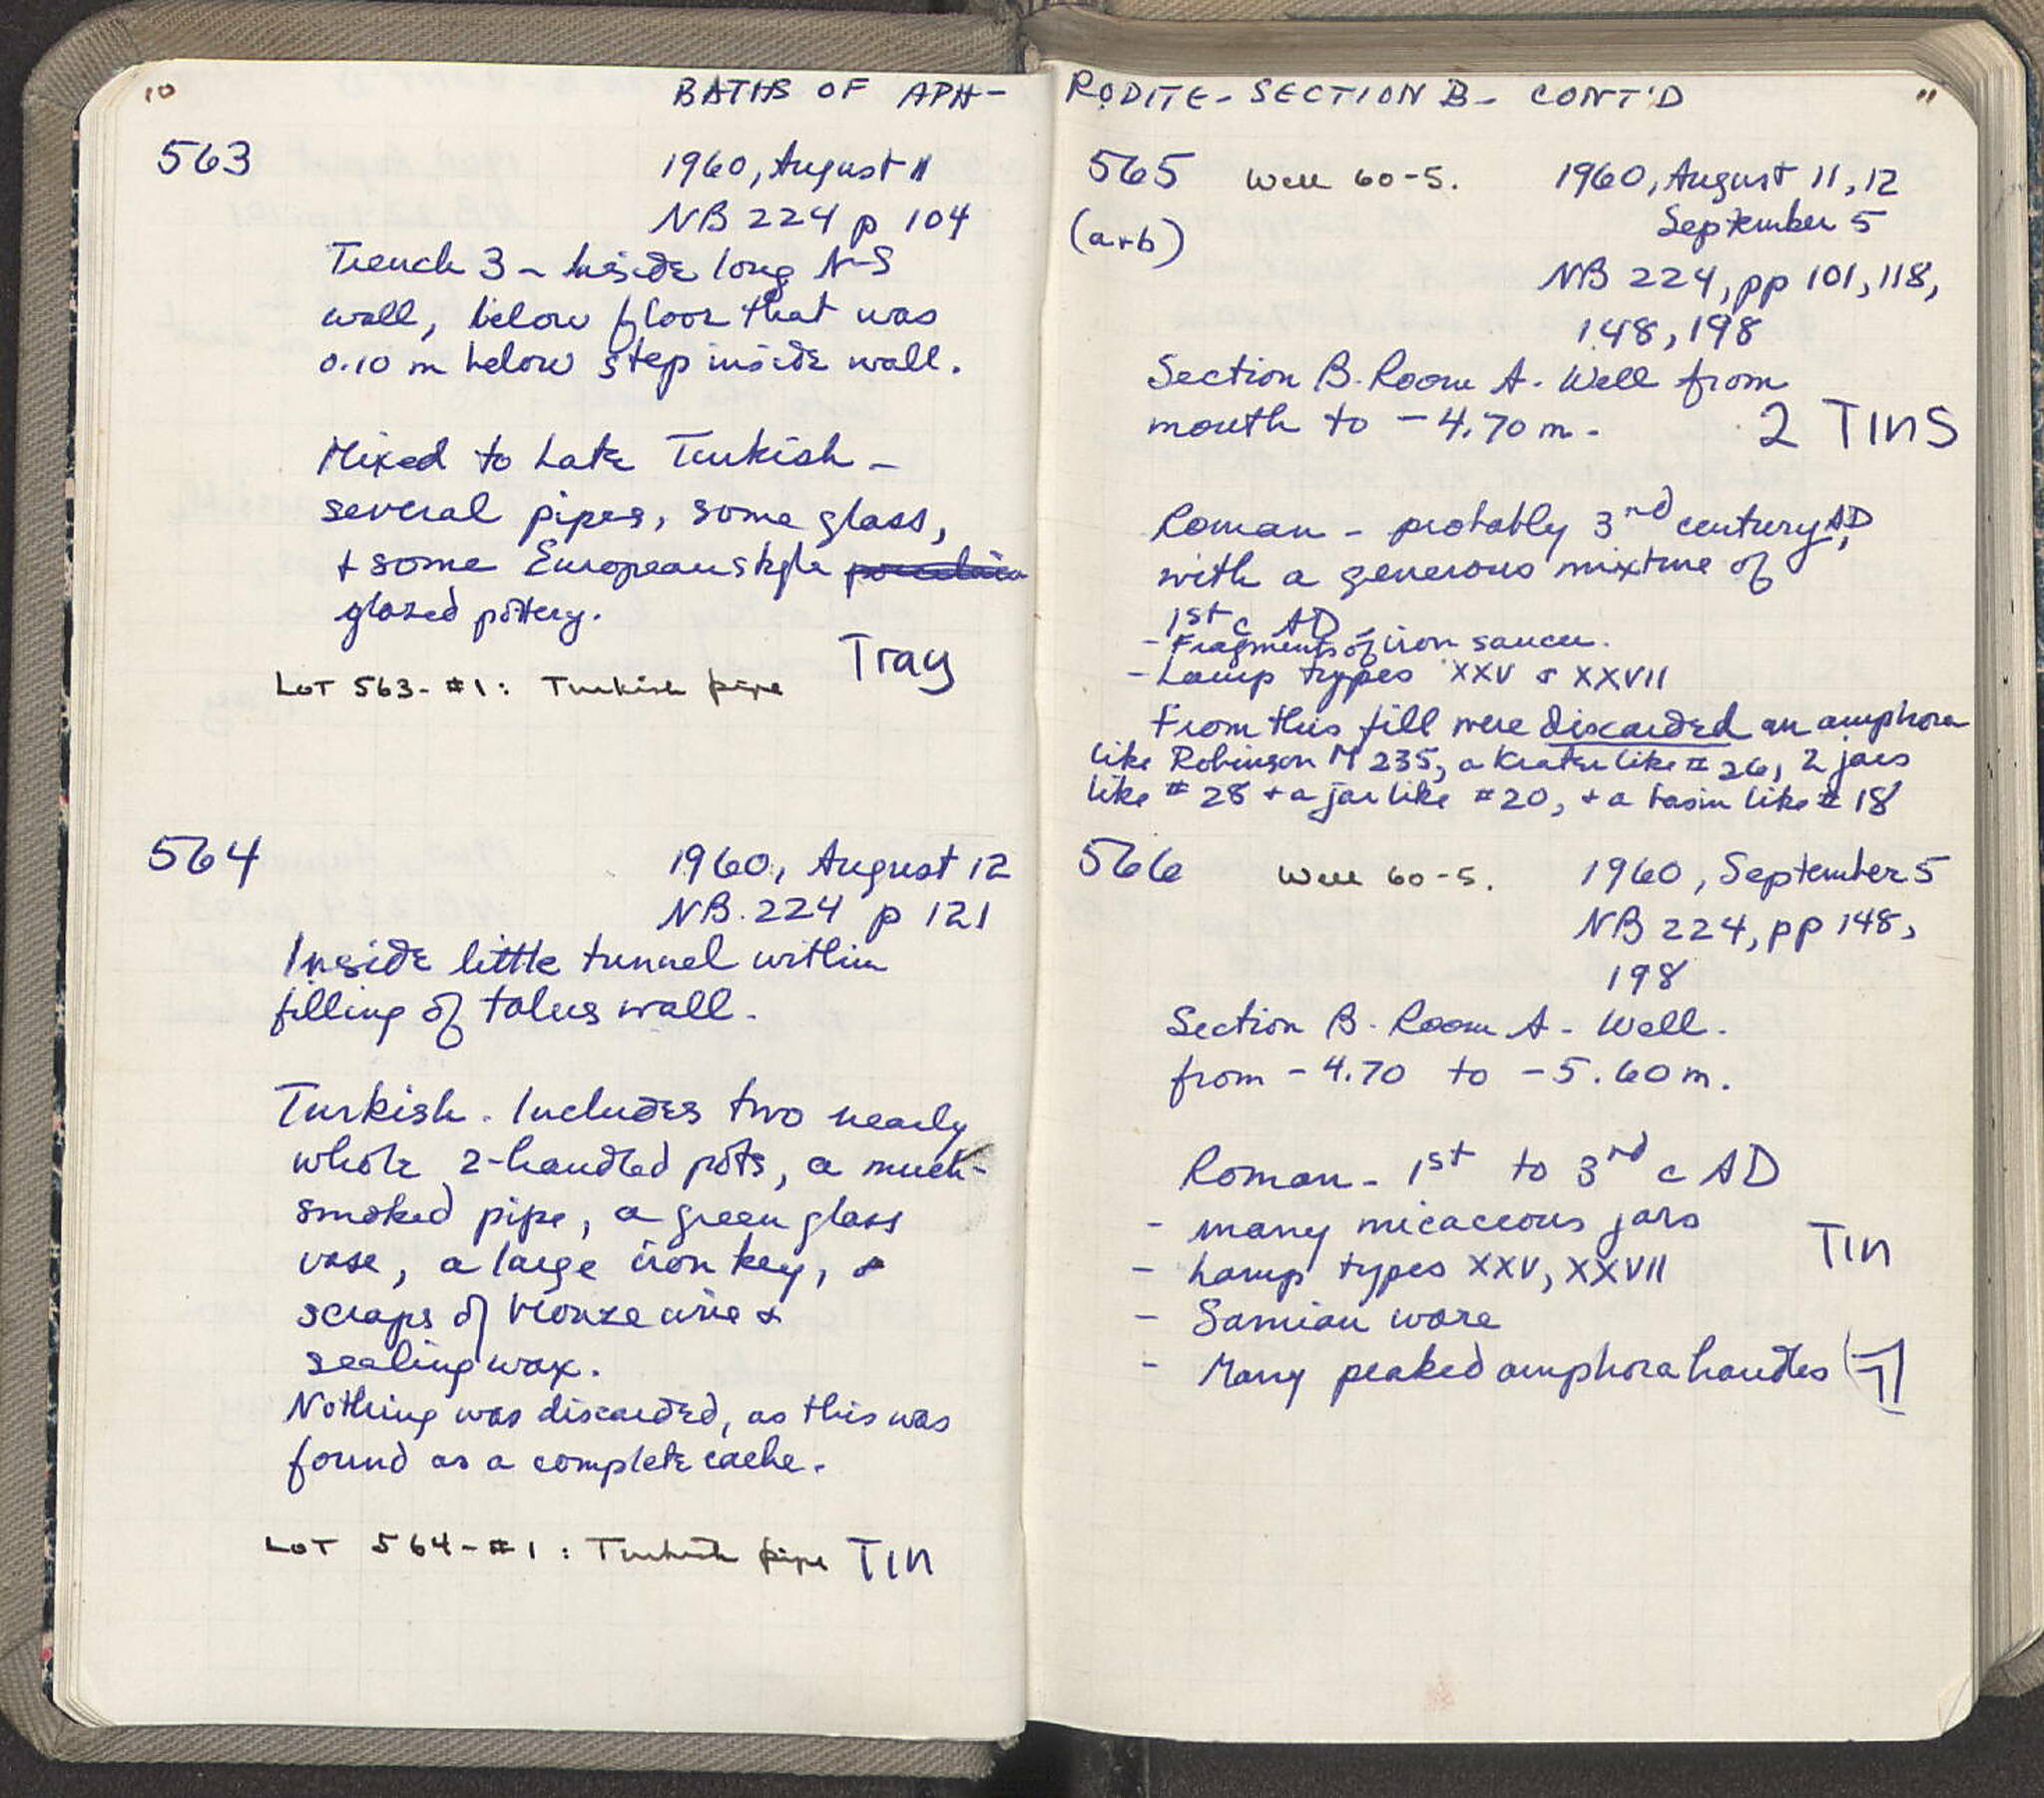 10
BATHS OF APH-
563
1960, August 11
NB 224 p 104
Trench 3 - Inside long N-S
wall, below floor that was
0.10 m below step inside wall.
Mixed to Late Turkish -
several pipes, some glass,
+ some European style porcelain
glazed pottery.
Tray
LOT 563-#1: Turkish pipe
564
1960, August 12
NB. 224 p 121
Inside little tunnel within
filling of talus wall.
Turkish. Includes two nearly
whole 2-handled pots, a much-
smoked pipe, a green glass
vase, a large iron key, +
scraps of bronze wire +
sealing wax.
Nothing was discarded, as this was
found as a complete cache.
LOT 564-#1: Turkish pipe TIN
RODITE - SECTION B - CONT'D
11
565 Well 60-5. 1960, August 11, 12
(a+b) September 5
NB 224, pp 101, 118,
148, 198
Section B. Room A. Well from
mouth to -4.70 m.
2 TINS
Roman - probably 3rd century AD,
with a generous mixture of
1st c AD.
- Fragments of iron saucer.
- Lamp types XXV + XXVII
From this fill were discarded an amphora
like Robinson M 235, a krater like # 26, 2 jars
like # 28 + a jar like #20, + a basin like # 18
566 Well 60-5. 1960, September 5
NB 224, pp 148,
198
Section B. Room A - Well.
from -4.70 to -5.60 m.
Roman - 1st to 3rd c AD
- many micaceous jars
TIN
- Lamp types XXV, XXVII
- Samian ware
- Many peaked amphora handles